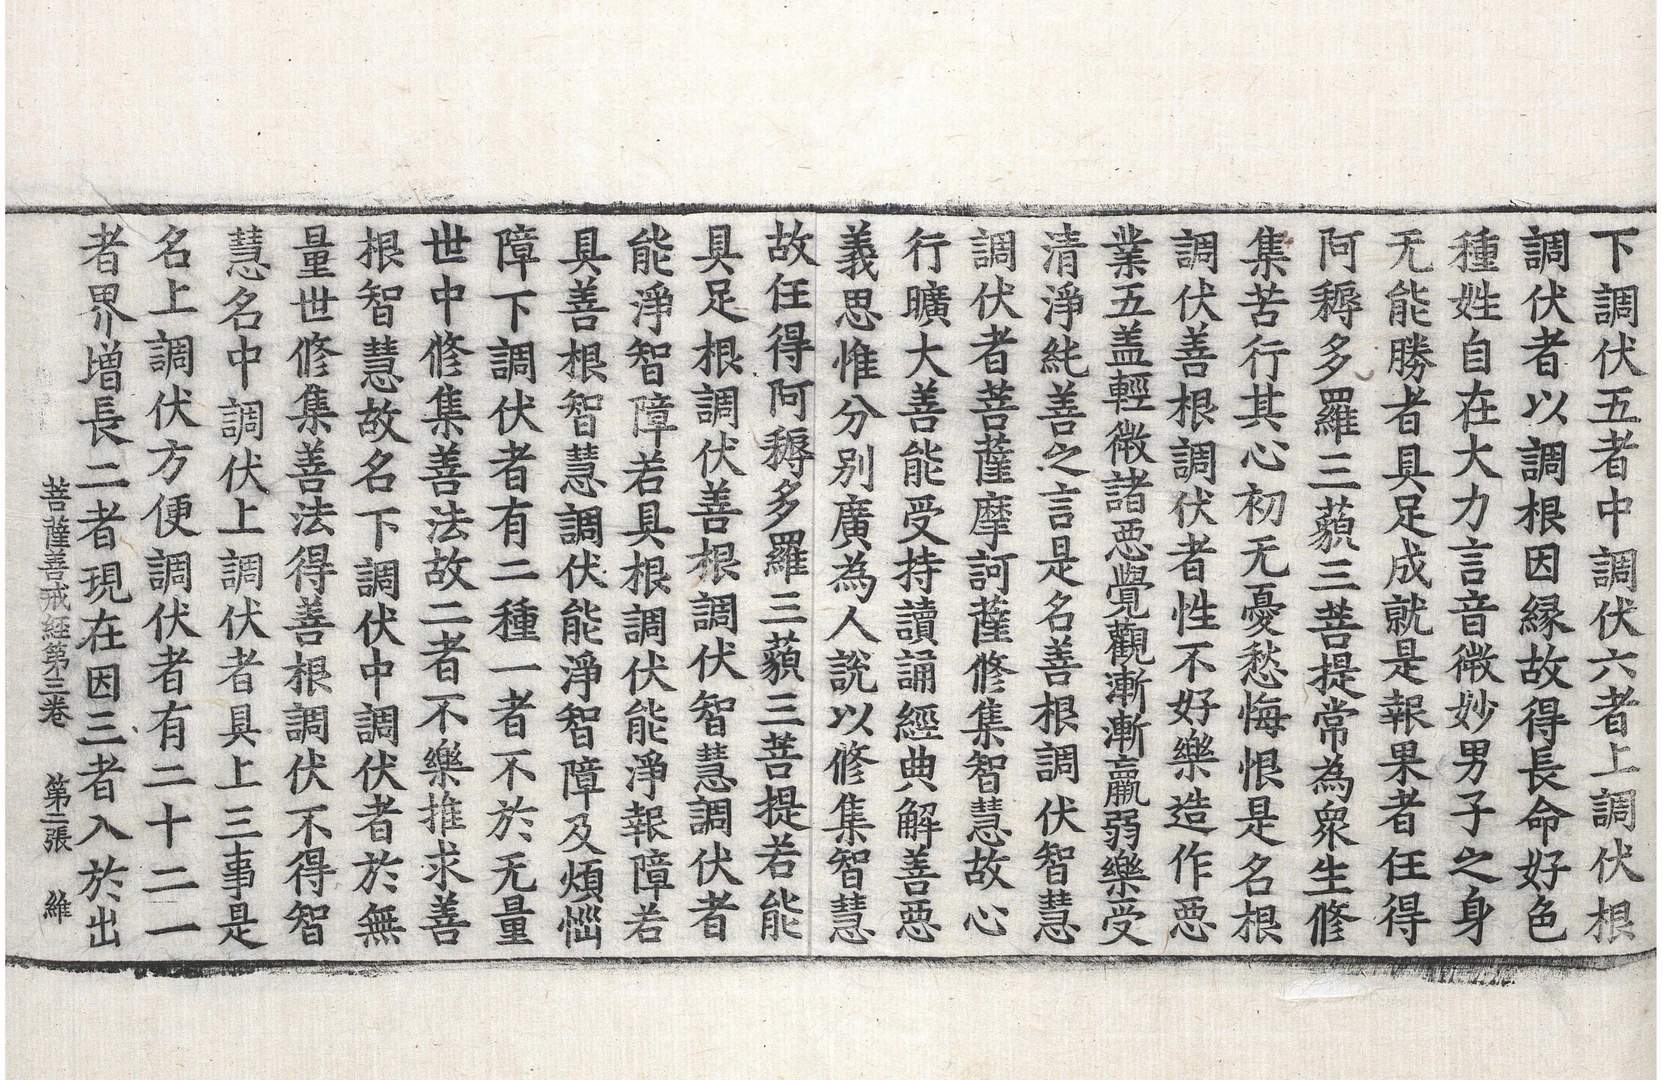 下調伏五者中調伏六者上調伏根
調伏者以調根因縁故得長命好色
種姓自在大力言音微妙男子之身
无能勝者具足成就是報果者任得
阿耨多羅三藐三菩提常為眾生修
集苦行其心初无憂愁悔恨是名根
調伏善根調伏者性不好樂造作惡
業五盖輕微諸惡覺觀漸漸羸弱樂受
清淨純善之言是名善根調伏智慧
調伏者菩薩摩訶薩修集智慧故心
行曠大善能受持讀誦經典解善惡
義思惟分別廣為人說以修集智慧
故任得阿耨多羅三藐三菩提若能
具足根調伏善根調伏智慧調伏者
能淨智障若具根調伏能淨報障若
具善根智慧調伏能淨智障及煩惱
障下調伏者有二種一者不於无量
世中修集善法故二者不樂推求善
根智慧故名下調伏中調伏者於無
量世修集善法得善根調伏不得智
慧名中調伏上調伏者具上三事是
名上調伏方便調伏者有二十二一
者界增長二者現在因三者入於出
菩薩善戒經第三卷 第二張 維